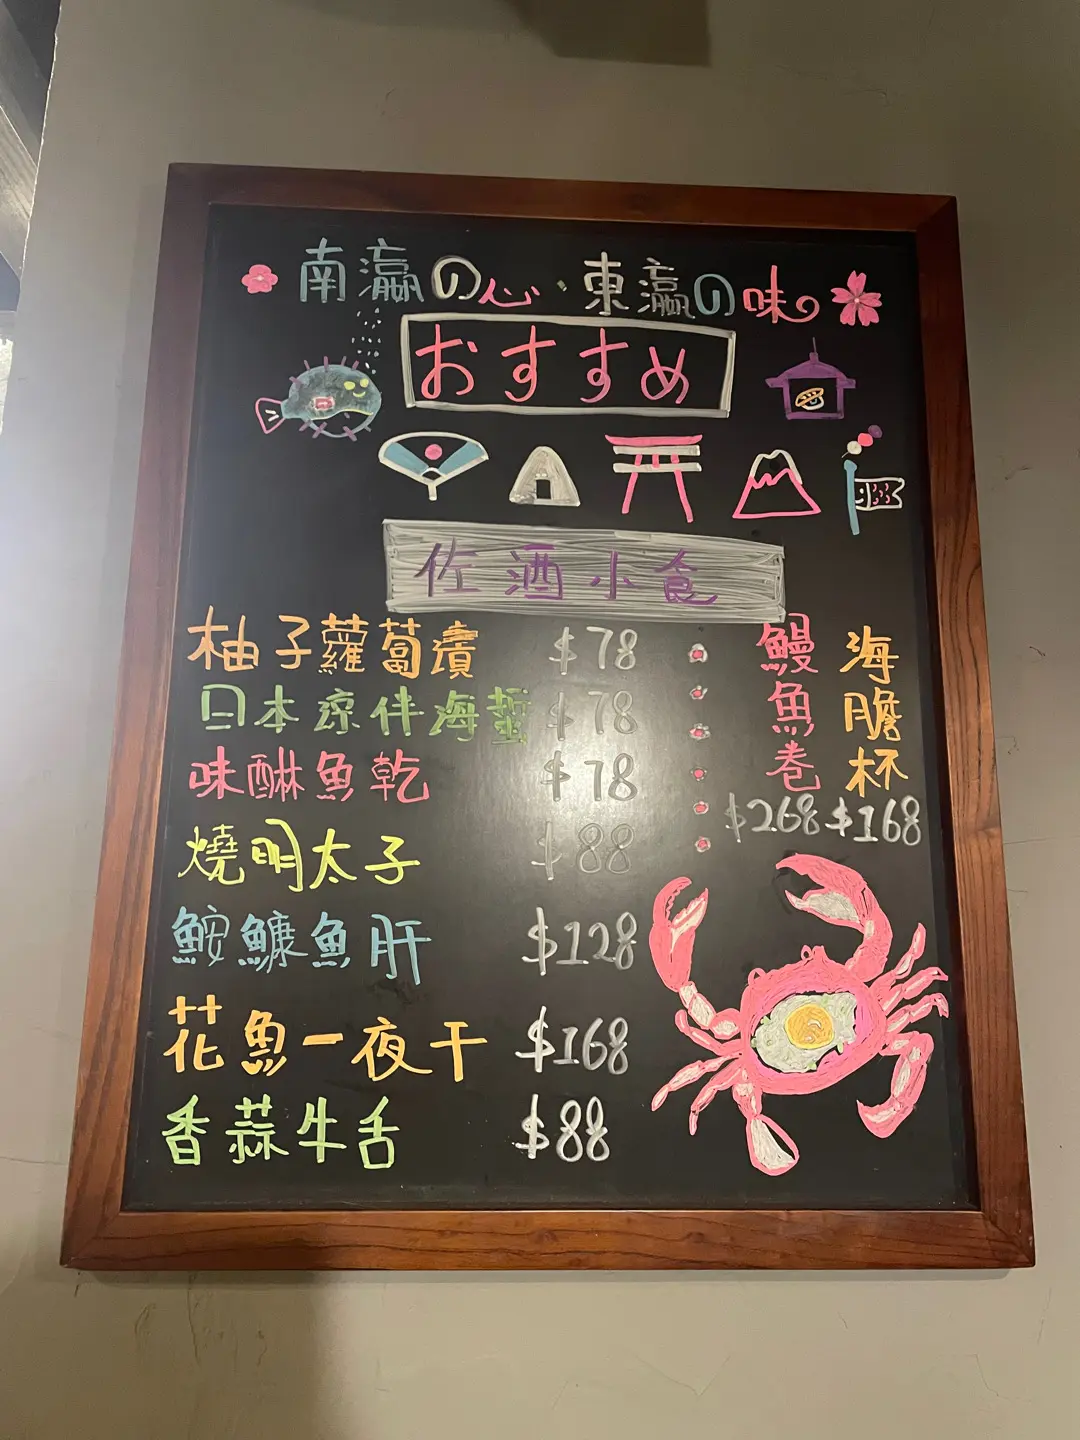 南瀛の心·東瀛の味
おすすめ
佐酒小食
柚子蘿蔔漬 $78
日本涼伴海蜇 $78
味醂魚乾 $78
燒明太子 $88
鮟鱇魚肝 $128
花魚一夜干 $168
香蒜牛舌 $88
鰻魚卷 $268
海膽杯 $168